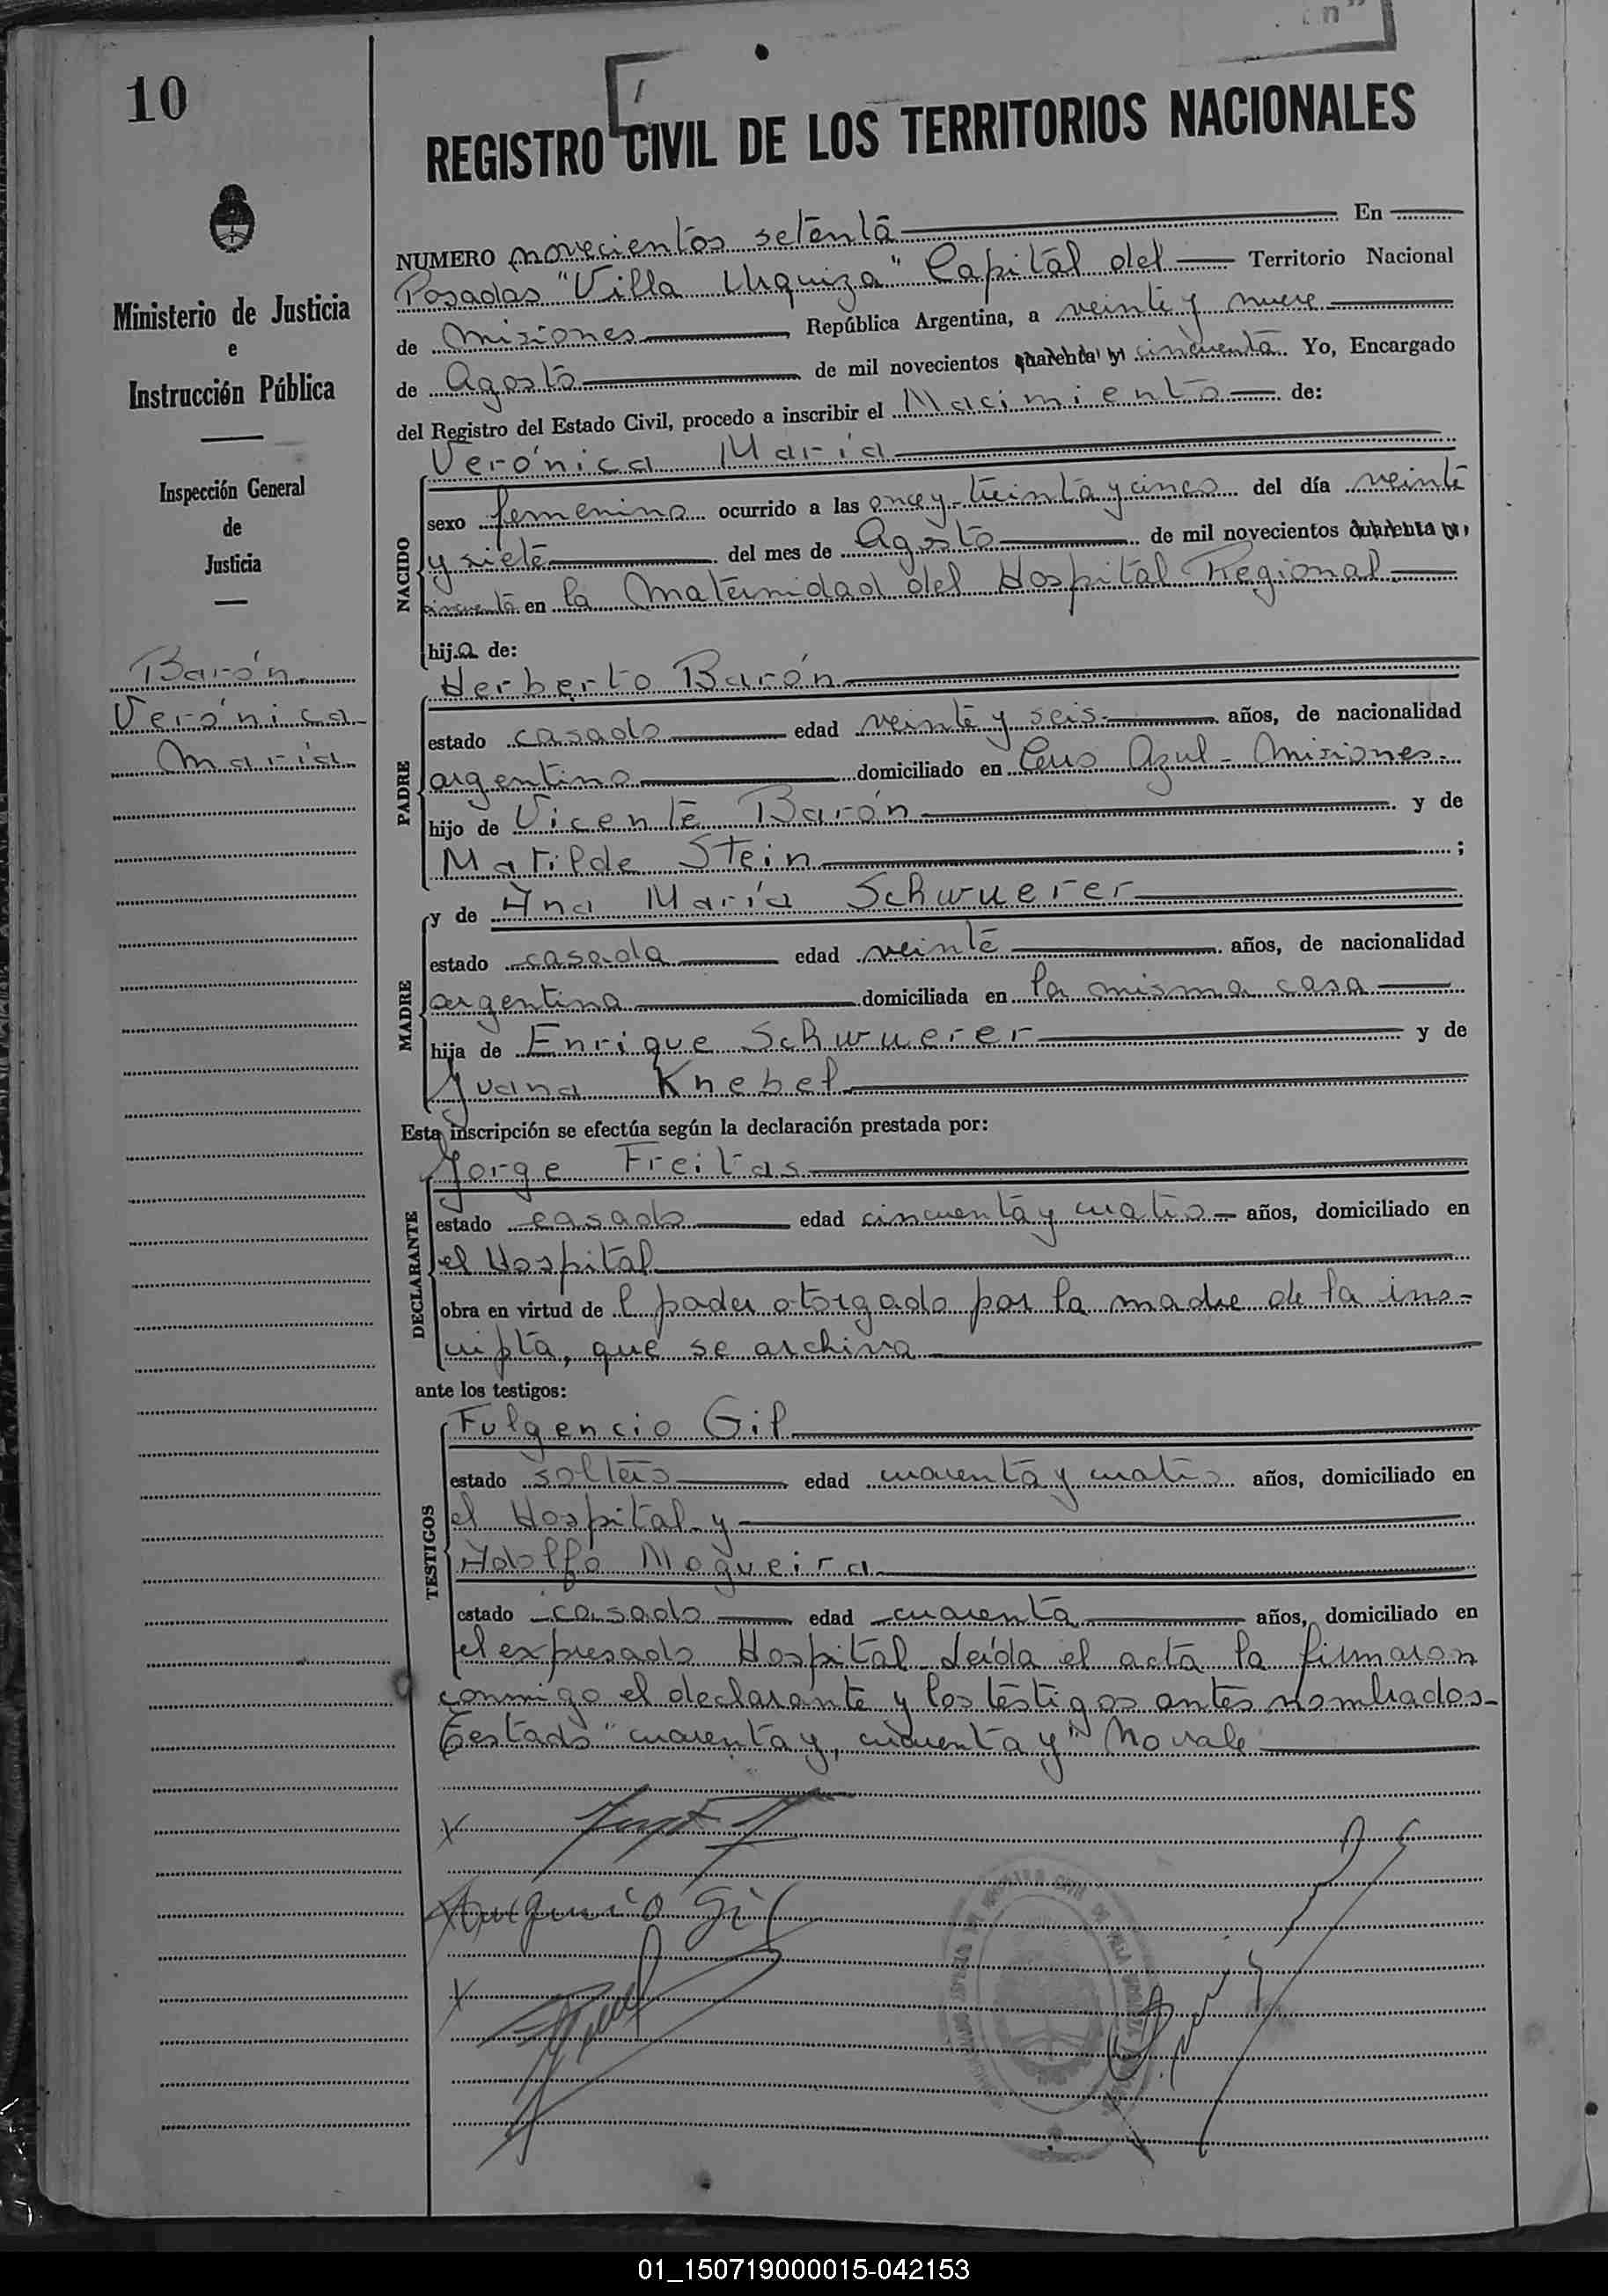 10
REGISTRO CIVIL DE LOS TERRITORIOS NACIONALES
Ministerio de Justicia
e
Instrucción Pública
Inspección General
de
Justicia
Barón
Verónica
María
NUMERO novecientos setenta En
Posadas "Villa Urquiza" Capital del Territorio Nacional
de Misiones República Argentina, a veinte y nueve
de Agosto de mil novecientos quarenta y cincuenta Yo, Encargado
del Registro del Estado Civil, procedo a inscribir el Nacimiento de:
Verónica María
NACIDO
sexo femenino ocurrido a las once y treinta y cinco del día veinte
y siete del mes de Agosto de mil novecientos cuarenta y
cincuenta en la Maternidad del Hospital Regional
hija de:
PADRE
Herberto Barón
estado casado edad veinte y seis años, de nacionalidad
argentino domiciliado en Cerro Azul - Misiones
hijo de Vicente Barón y de
Matilde Stein ;
MADRE
y de Ana María Schwuerer
estado casada edad veinte años, de nacionalidad
argentina domiciliada en la misma casa
hija de Enrique Schwuerer y de
Juana Knebel
Esta inscripción se efectúa según la declaración prestada por:
DECLARANTE
Jorge Freitas
estado casado edad cincuenta y cuatro años, domiciliado en
el Hospital
obra en virtud de l poder otorgado por la madre de la ins-
cripta, que se archiva
ante los testigos:
TESTIGOS
Fulgencio Gil
estado soltero edad cuarenta y cuatro años, domiciliado en
el Hospital y
Adolfo Nogueira
estado casado edad cuarenta años, domiciliado en
el expresado Hospital Leída el acta la firmaron
conmigo el declarante y los testigos antes nombrados-
Testado "cuarenta y, cuarenta y" No vale
x
Fulgencio Gil
x
01_150719000015-042153